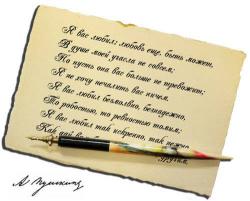 Я вас любил: любовь еще, быть может,
В душе моей угасла не совсем;
Но пусть она вас больше не тревожит;
Я не хочу печалить вас ничем.
Я вас любил безмолвно, безнадежно,
То робостью, то ревностью томим;
Я вас любил так искренно, так нежно,
Как дай вам
другим.
А Пушкин